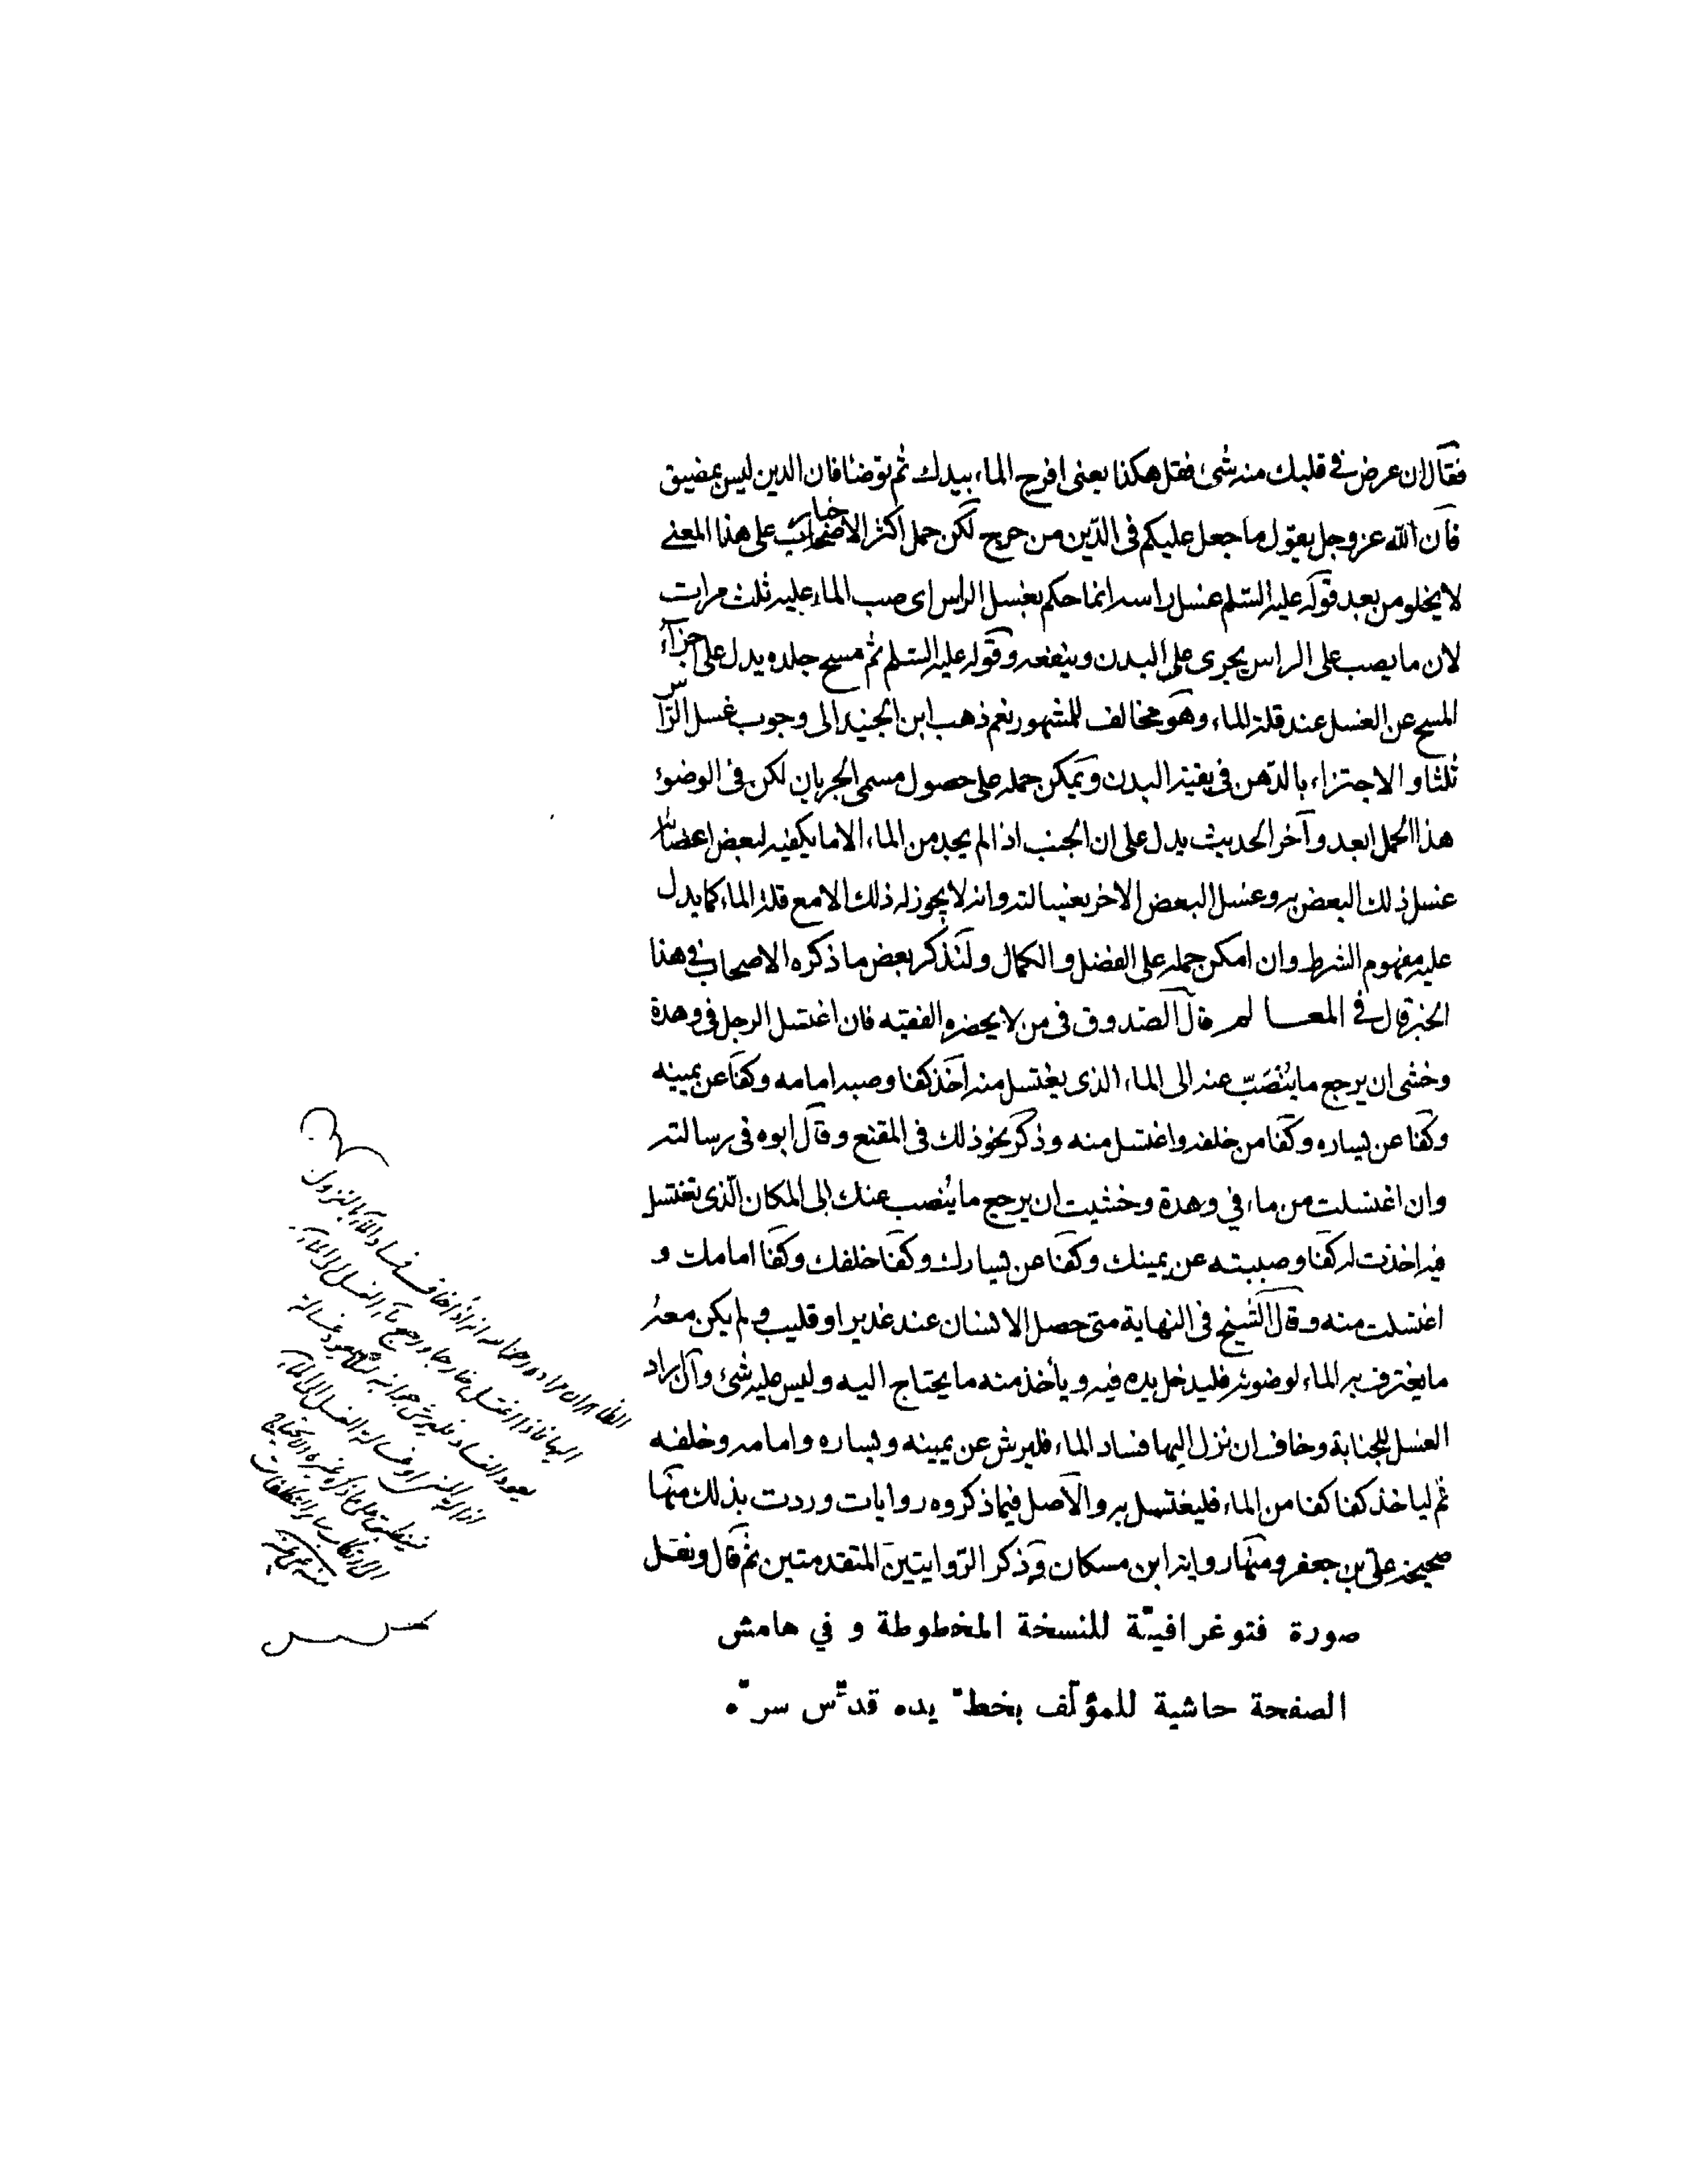 فقال ان عرض في قلبك منه شئ فقل هكذا يعنى افرج الماء بيدك ثم توضأ فان الدين ليس بمضيق
فان الله عز وجل يقول ما جعل عليكم فى الدّين من حرج لكن حمل اكثر الاخبار على هذا المعنى
لا يخلو من بعد قوله عليه السّلم غسل راسه انما حكم بغسل الراس اى صب الماء عليه ثلث مرات
لان ما يصب على الراس يجرى على البدن وينفعه وقوله عليه السّلم ثم مسح جلده يدل على اجزاء
المسح عن الغسل عند قلة الماء وهو مخالف للمشهور نعم ذهب ابن الجنيد الى وجوب غسل الرّاس
ثلثا والاجتزاء بالدّهن فى بقية البدن ويمكن حمله على حصول مسمى الجريان لكن فى الوضوء
هذا الحمل ابعد وآخر الحديث يدل على ان الجنب اذا لم يجد من الماء الا ما يكفيه لبعض اعضائه
غسل ذلك البعض به وغسل البعض الاخر بغسالته وانه لا يجوز له ذلك الا مع قلة الماء كما يدل
عليه مفهوم الشرط وان امكن حمله على الفضل والكمال ولنذكر بعض ما ذكره الاصحاب فى هذا
الخبر قال في المعالم قال الصدوق فى من لا يحضره الفقيه فان اغتسل الرجل فى وهدة
وخشى ان يرجع ما يُنْصَبّ عنه الى الماء الذى يغتسل منه اخذ كفا وصبه امامه وكفا عن يمينه
وكفا عن يساره وكفا من خلفه واغتسل منه وذكر نحو ذلك فى المقنع وقال ابوه فى رسالته
وان اغتسلت من ماء في وهدة وخشيت ان يرجع ما يُنصب عنك الى المكان الّذى تغتسل
فيه اخذت له كفا وصببته عن يمينك وكفا عن يسارك وكفا خلفك وكفا امامك و
اغتسلت منه وقال الشّيخ فى النهاية متى حصل الانسان عند غدير او قليب ولم يكن معه
ما يغترف به الماء لوضوئه فليدخل يده فيه ويأخذ منه ما يحتاج اليه وليس عليه شئ وان اراد
الغسل للجنابة وخاف ان نزل اليها فساد الماء فليرش عن يمينه ويساره وامامه وخلفه
ثم ليا خذ كفا كفا من الماء فليغتسل به والاصل فيما ذكروه روايات وردت بذلك منها
صحيحة علىّ بن جعفر ومنها رواية ابن مسكان وذكر الرّوايتين المتقدمتين ثم قال ونقل
الظاهر ان مراده رحمه الله انه اذا خاف فساد الماء بالنزول
اليها فاذا اغتسل خارجا ورجع ماء الغسل الى الماء
يعود الفساد فليرش جوانبه لئلا يعود غسالة
الغسل الى الماء
فينطبق على ما ذكره غيره ولا يحتاج
الى ارتكاب ساير التكلفات
منه عفى عنه
صورة فتوغرافيّة للنسخة المخطوطة و في هامش
الصفحة حاشية للمؤلّف بخطّ يده قدّس سرّه